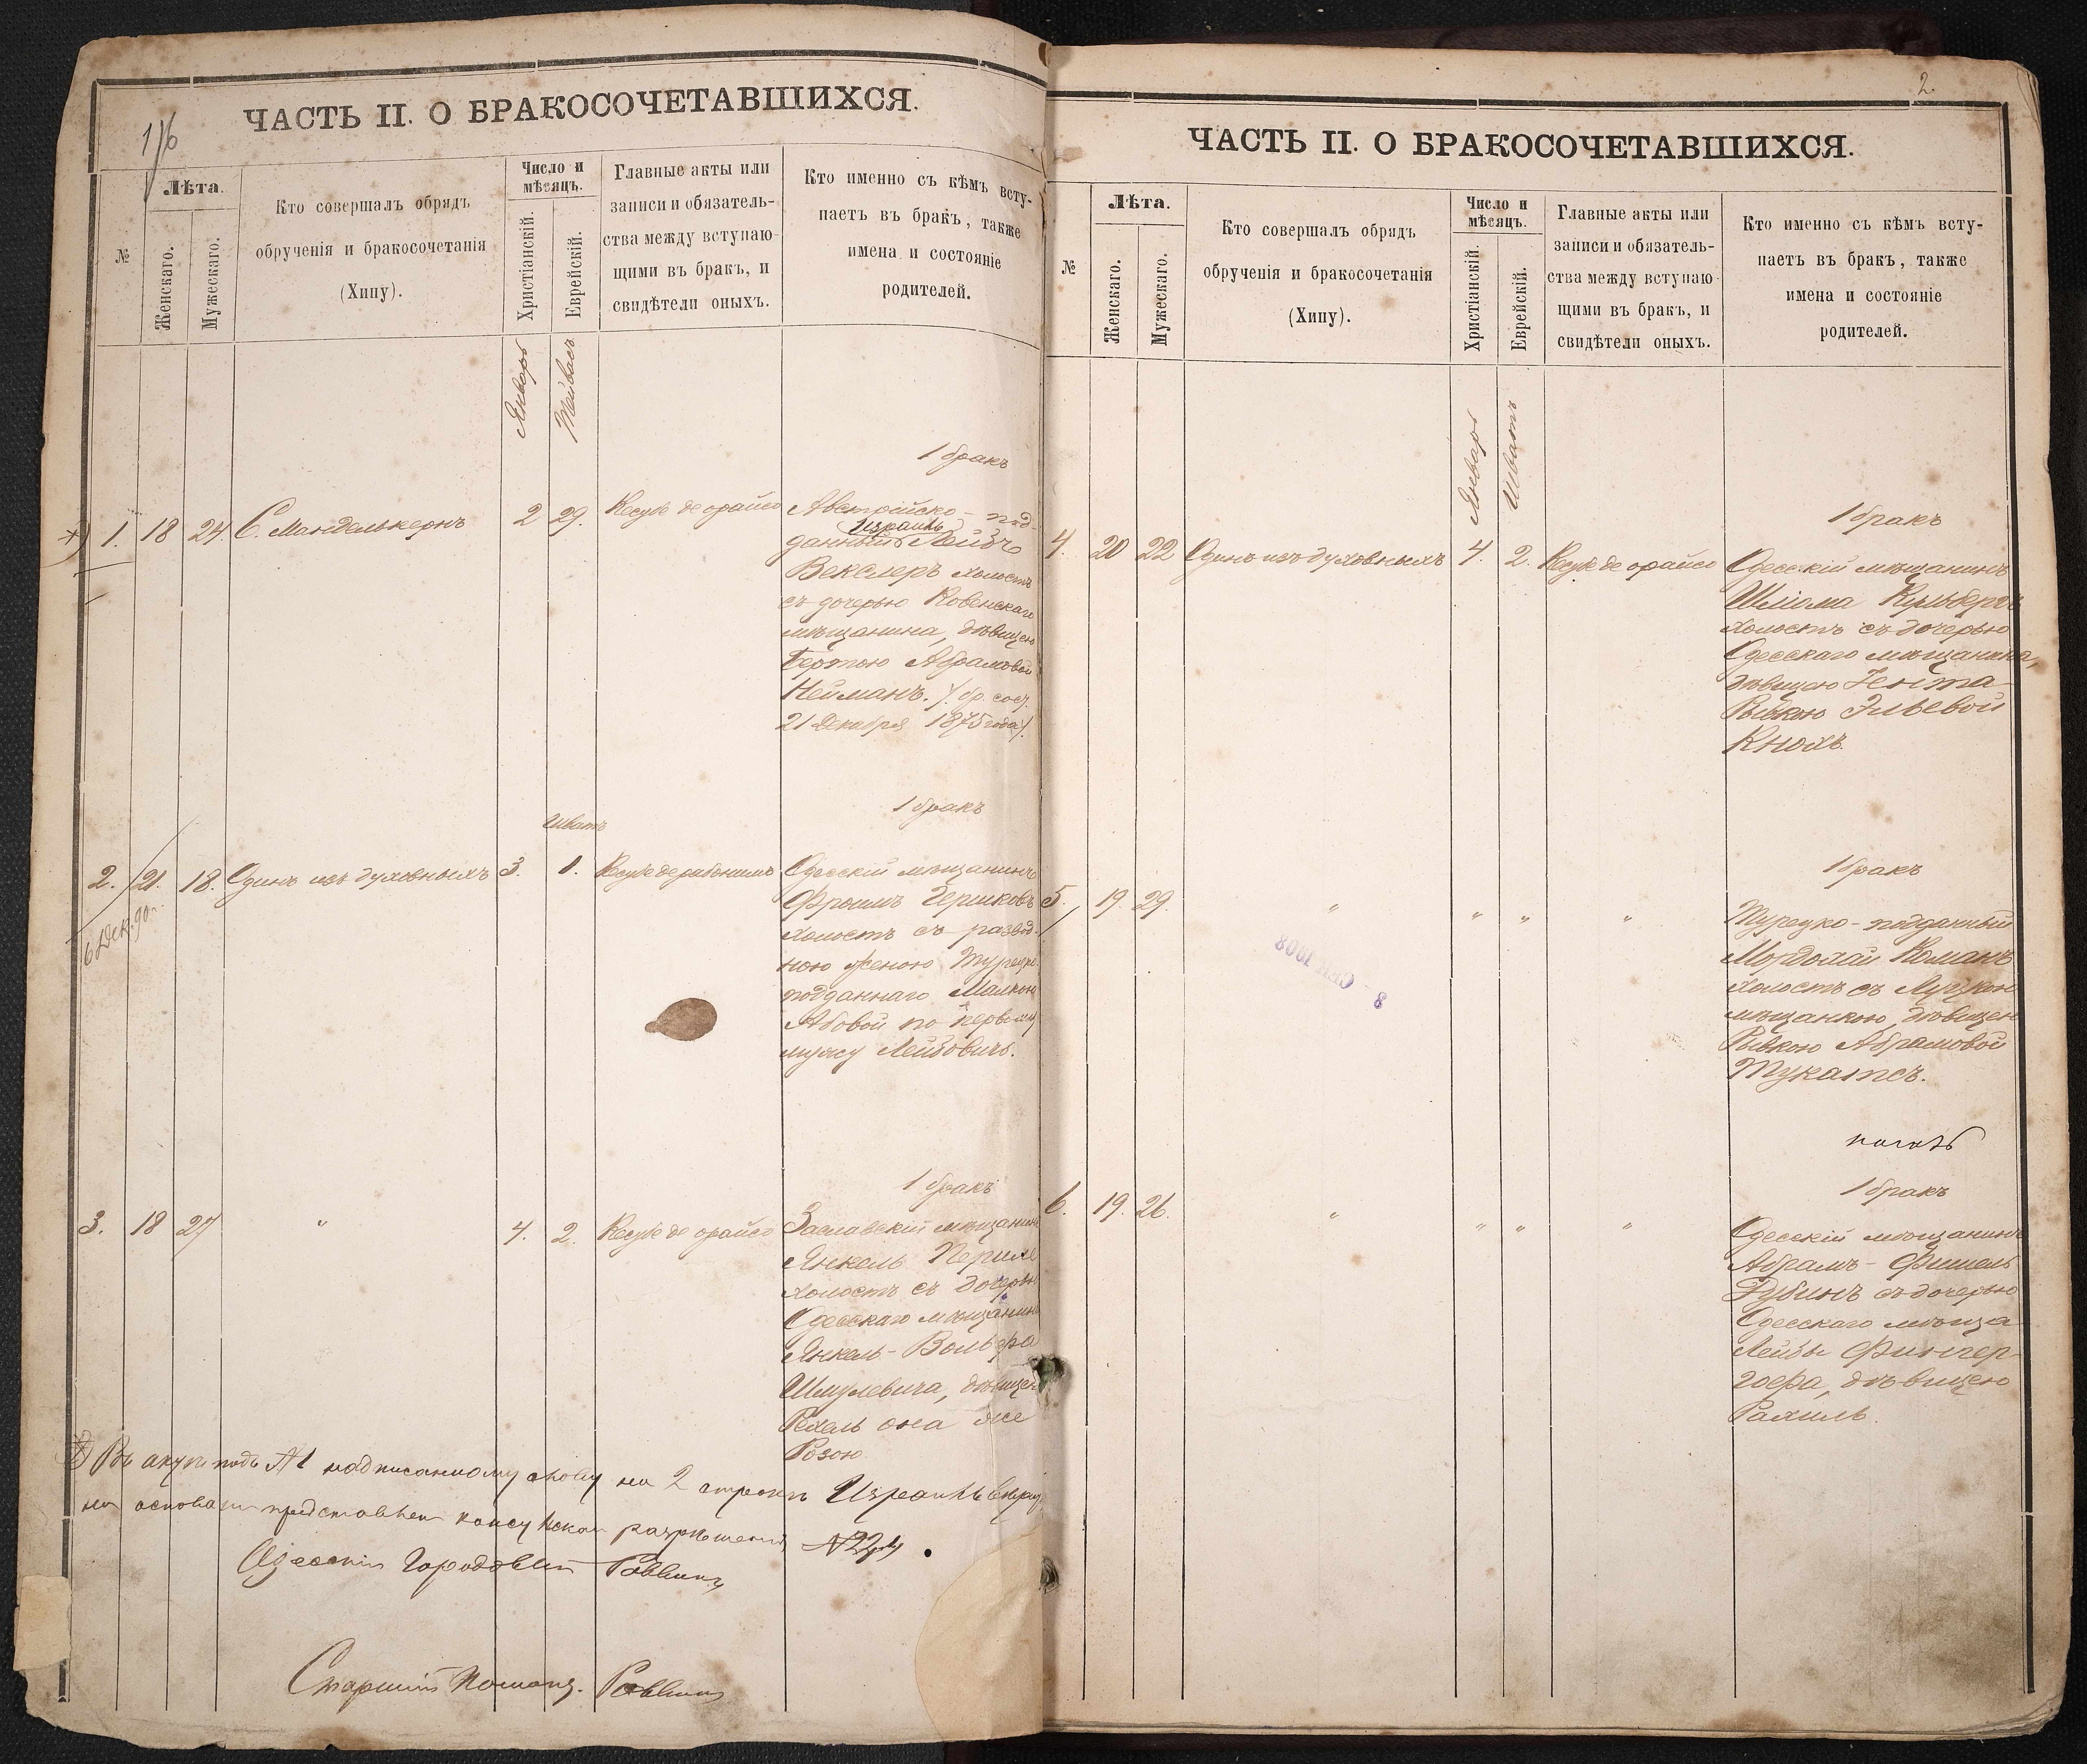 ЧАСТЬ II. О БРАКОСОЧЕТАВШИХСЯ.
№
Лѣта.
Женскаго.
Мужескаго.
Кто совершалъ обрядъ
обрученія и бракосочетанія
(Хипу).
Число и
мѣсяцъ.
Христіанскій.
Еврейскій.
Главные акты или
записи и обязатель-
ства между вступаю-
щими въ бракъ, и
свидѣтели оныхъ.
Кто именно съ кѣмъ всту-
паетъ въ бракъ, также
имена и состояніе
родителей.
Январь
Тейвасъ
1 бракъ
1. 18 24. С. Манделькернъ 2 29. Кесубе де орайсо Австрійско-под-
Израиль
данный Лейбъ
Векслеръ холостъ
съ дочерью Ковенскаго
мѣщанина, дѣвицею
Бертою Абрамовой
Нейманъ. /бр. сов.
21 Декабря 1875 года/.
1 бракъ
Шватъ
2. 21. 18. Одинъ изъ духовныхъ 3. 1. Кесубе дерабонимъ Одесскій мѣщанинъ
6 Дек. 90 г.
Фроимъ Гершковъ
холостъ съ развод-
ною женою Турецко-
подданнаго Малкою
Абовой по первому
мужу Лейбовичъ.
1 бракъ
3. 18 27 " 4. 2. Кесубе де орайсо Заславскій мѣщанинъ
Янкель
холостъ съ дочерью
Одесскаго мѣщанина
Янкель-Вольфа
Шмулевича, дѣвицею
Рехель она же
Розою
Въ актѣ подъ №1 надписанному слову на 2 строкѣ Израиль вѣрить
на основаніи представлен. консульскаго разрѣшенія №224
Одесскій Городовой Раввинъ
Старшій Помощ. Раввина
2.
ЧАСТЬ II. О БРАКОСОЧЕТАВШИХСЯ.
№
Лѣта.
Женскаго.
Мужескаго.
Кто совершалъ обрядъ
обрученія и бракосочетанія
(Хипу).
Число и
мѣсяцъ.
Христіанскій.
Еврейскій.
Главные акты или
записи и обязатель-
ства между вступаю-
щими въ бракъ, и
свидѣтели оныхъ.
Кто именно съ кѣмъ всту-
паетъ въ бракъ, также
имена и состояніе
родителей.
Январь
Шватъ
1 бракъ
4. 20 22 Одинъ изъ духовныхъ 4. 2. Кесубе де орайсо Одесскій мѣщанинъ
Шліома Кильберъ
холостъ съ дочерью
Одесскаго мѣщанина,
дѣвицею Гента-
Рывкою Эльевой
Кнохъ.
1 бракъ
5. 19. 29. " " " " Турецко-подданный
Мордохай Команъ
холостъ съ Луцкою
мѣщанкою, дѣвицею
Рывкою Абрамовой
Тукатсъ.
8 - СЕН 1908
1 бракъ
6. 19. 26. " " " " Одесскій мѣщанинъ
Абрамъ-Фишель
Рубинъ съ дочерью
Одесскаго мѣща-
Лейбы Фингер-
гоефа, дѣвицею
Рахиль.